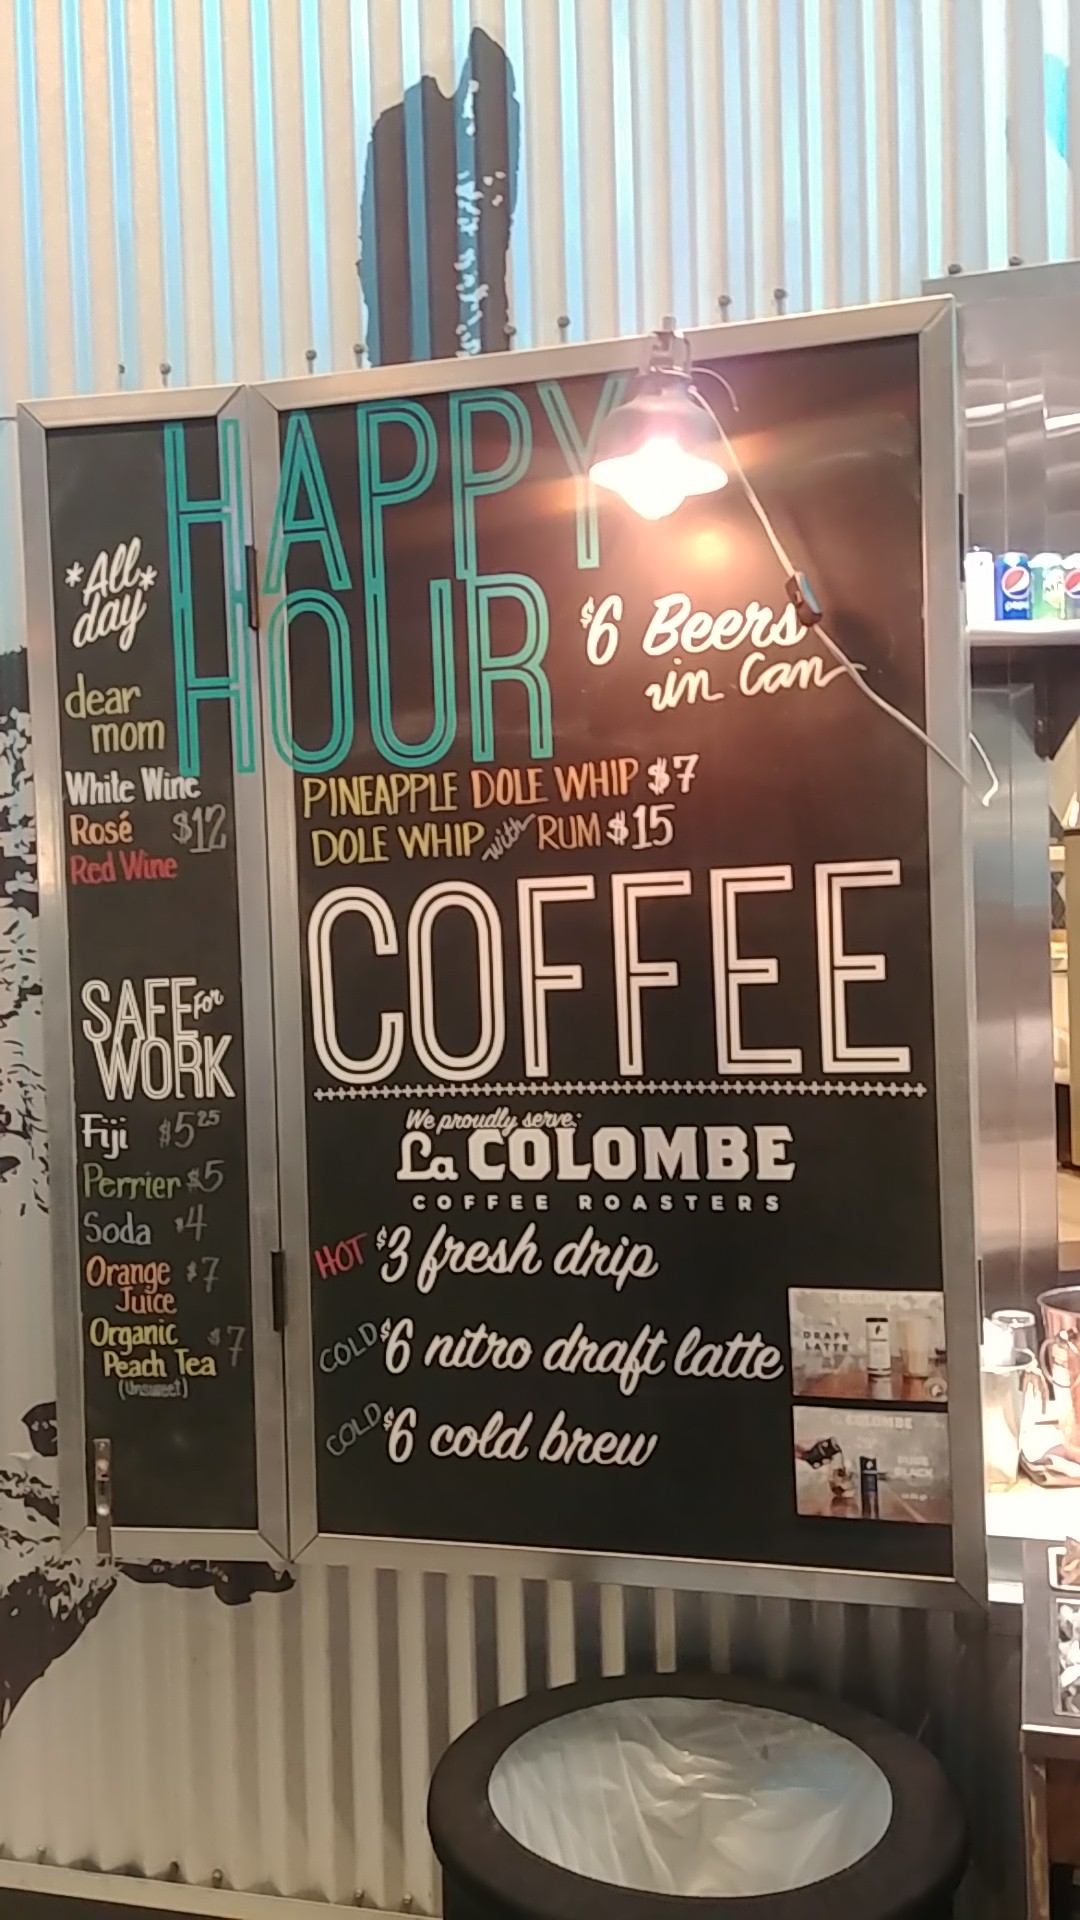 HAPPY
HOUR
*All*
day
$6 Beers
in Can
dear
mom
White Wine
Rosé $12
Red Wine
PINEAPPLE DOLE WHIP $7
DOLE WHIP with RUM $15
SAFE for
WORK
Fiji $5.25
Perrier $5
Soda $4
Orange $7
Juice
Organic $7
Peach Tea
(Unsweet)
COFFEE
We proudly serve:
La COLOMBE
COFFEE ROASTERS
HOT $3 fresh drip
COLD $6 nitro draft latte
COLD $6 cold brew
DRAFT
LATTE
COLOMBE
BLACK
pepsi